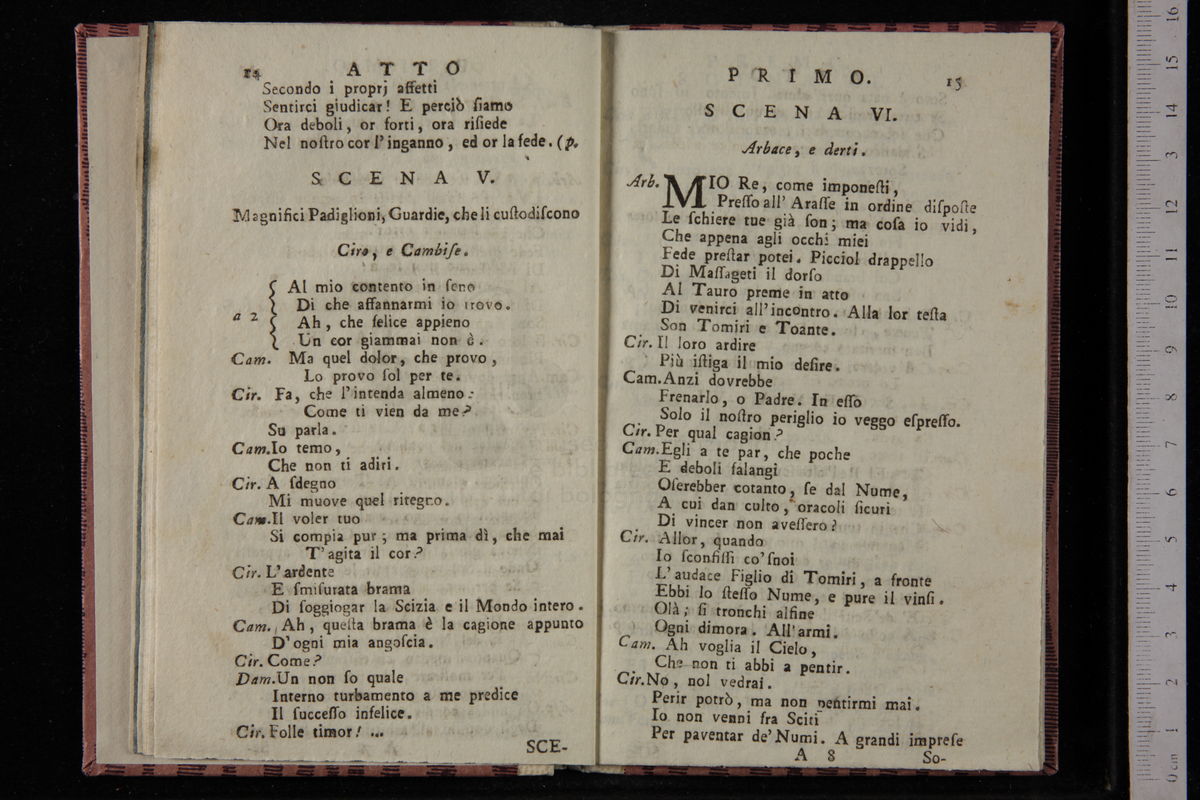 14 ATTO
Secondo i proprj affetti
Sentirci giudicar! E perciò ſiamo
Ora deboli, or forti, ora riſiede
Nel noſtro cor l'inganno, ed or la fede. (p.
SCENA V.
Magnifici Padiglioni, Guardie, che li cuſtodiſcono
Ciro, e Cambiſe.
Al mio contento in ſeno
Di che affannarmi io trovo.
a 2
Ah, che felice appieno
Un cor giammai non è.
Cam. Ma quel dolor, che provo,
Lo provo ſol per te.
Cir. Fa, che l'intenda almeno:
Come ti vien da me?
Su parla.
Cam. Io temo,
Che non ti adiri.
Cir. A ſdegno
Mi muove quel ritegno.
Cam. Il voler tuo
Si compia pur; ma prima dì, che mai
T'agita il cor?
Cir. L'ardente
E ſmiſurata brama
Di ſoggiogar la Scizia e il Mondo intero.
Cam. Ah, queſta brama è la cagione appunto
D'ogni mia angoſcia.
Cir. Come?
Dam. Un non ſo quale
Interno turbamento a me predice
Il ſucceſſo infelice.
Cir. Folle timor! ...
SCE-
PRIMO. 15
SCENA VI.
Arbace, e derti.
Arb. MIO Re, come imponeſti,
Preſſo all' Araſſe in ordine diſpoſte
Le ſchiere tue già ſon; ma coſa io vidi,
Che appena agli occhi miei
Fede preſtar potei. Picciol drappello
Di Maſſageti il dorſo
Al Tauro preme in atto
Di venirci all'incontro. Alla lor teſta
Son Tomiri e Toante.
Cir. Il loro ardire
Più iſtiga il mio deſire.
Cam. Anzi dovrebbe
Frenarlo, o Padre. In eſſo
Solo il noſtro periglio io veggo eſpreſſo.
Cir. Per qual cagion?
Cam. Egli a te par, che poche
E deboli falangi
Oſerebber cotanto, ſe dal Nume,
A cui dan culto, oracoli ſicuri
Di vincer non aveſſero?
Cir. Allor, quando
Io ſconfiſſi co'ſnoi
L'audace Figlio di Tomiri, a fronte
Ebbi lo ſteſſo Nume, e pure il vinſi.
Olà; ſi tronchi alfine
Ogni dimora. All'armi.
Cam. Ah voglia il Cielo,
Che non ti abbi a pentir.
Cir. No, nol vedrai.
Perir potrò, ma non pentirmi mai.
Io non venni fra Sciti
Per paventar de'Numi. A grandi impreſe
A 8 So-
0 cm 1 2 3 4 5 6 7 8 9 10 11 12 13 14 15 16